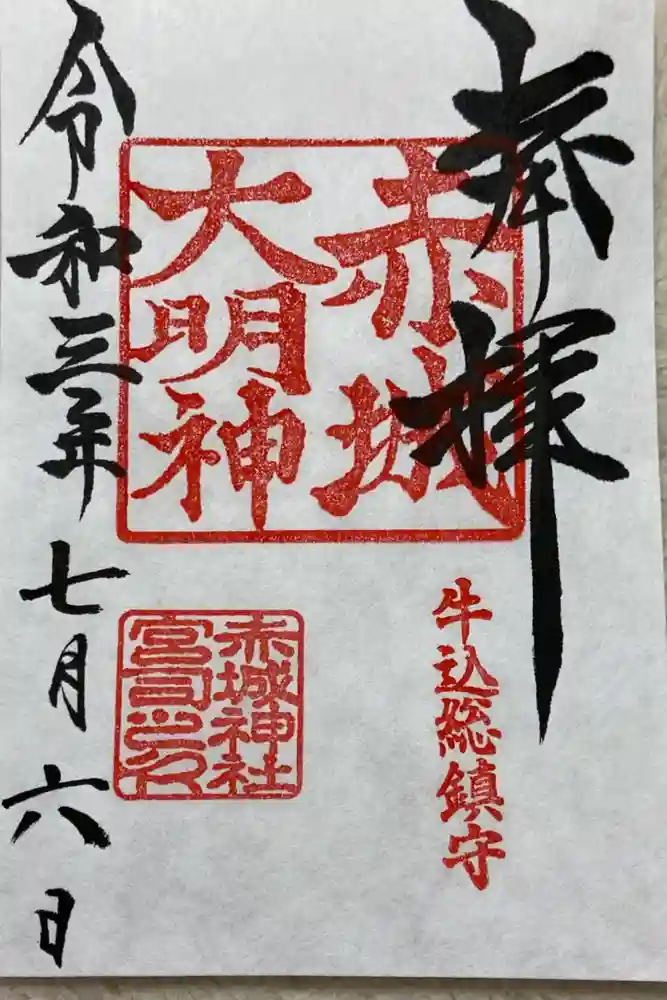 奉拝
赤城
大明神
牛込総鎮守
赤城神社
宮司之印
令和三年七月六日